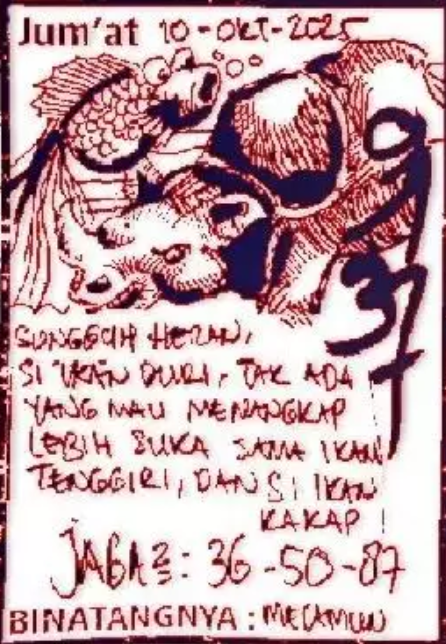 Jum'at 10-OKT-2025
37
SUNGGUH HERAN,
SI IKAN DURI, TAK ADA
YANG MAU MENANGKAP
LEBIH SUKA SAMA IKAN
TENGGIRI, DAN SI IKAN
KAKAP !
JAGA2: 36-50-87
BINATANGNYA : MELAMUN